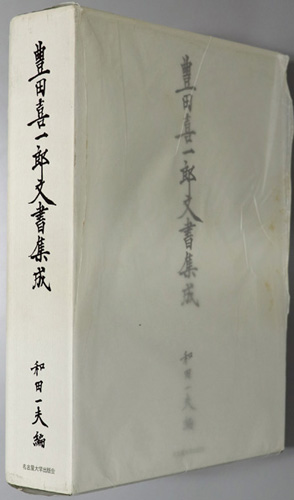 豊田喜一郎文書集成
和田一夫編
名古屋大学出版会
豊田喜一郎文書集成
和田一夫編
名古屋大学出版会